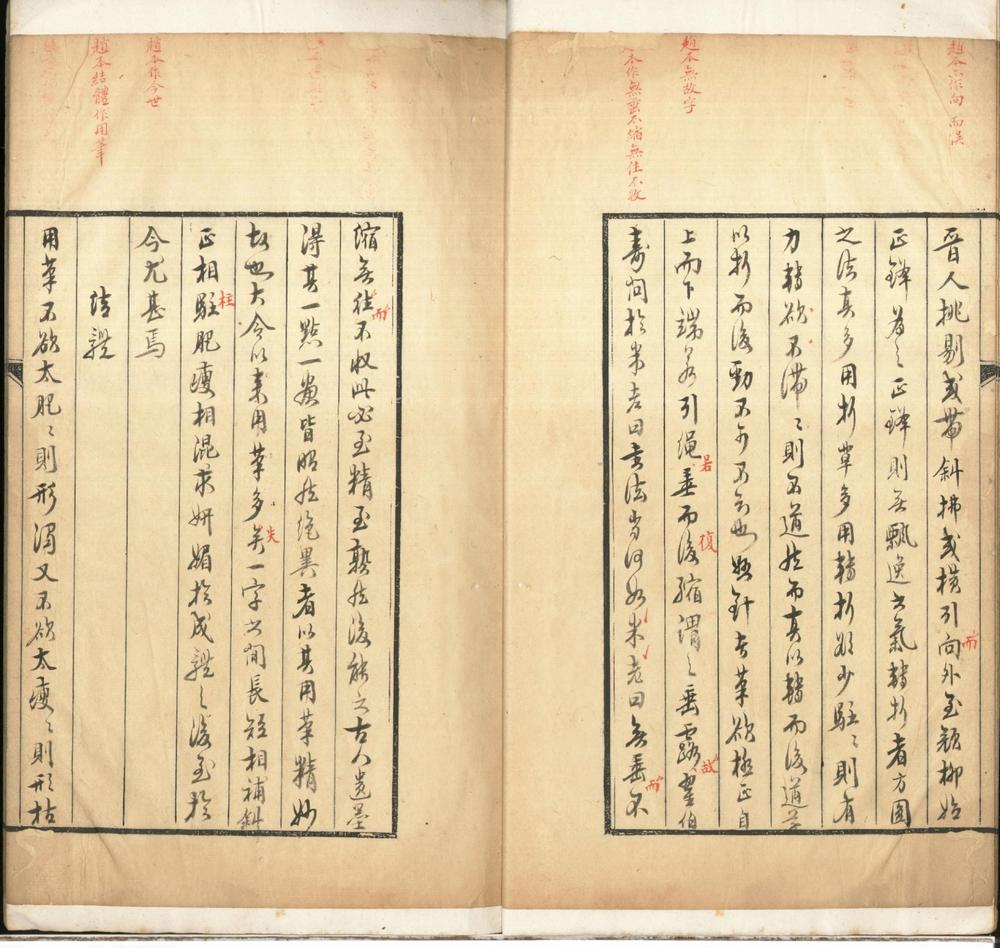 趙本亦作向 而誤
趙本無故字
本作無垂不縮無往不收
晉人挑剔或帶斜拂或橫引向外至顏柳始
而
正鋒為之正鋒則無飄逸之氣轉折者方圓
之法真多用折草多用轉折欲少駐〻則有
力轉欲不滯〻則不遒然而真以轉而後遒草
以折而後勁不可不知也懸針者筆欲極正自
上而下端若引繩垂而後縮謂之垂露翟伯
若
復
故
壽問於米老曰書法當何如米老曰無垂不
而
趙本作今世
趙本結體作用筆
縮無往不收此必至精至熟然後能之古人遺墨
而
得其一點一畫皆昭然絕異者以其用筆精妙
故也大令以來用筆多失一字之間長短相補斜
失
正相駐肥瘦相混求妍媚於成體之後至於
柱
今尤甚焉
結體
用筆不欲太肥〻則形濁又不欲太瘦〻則形枯